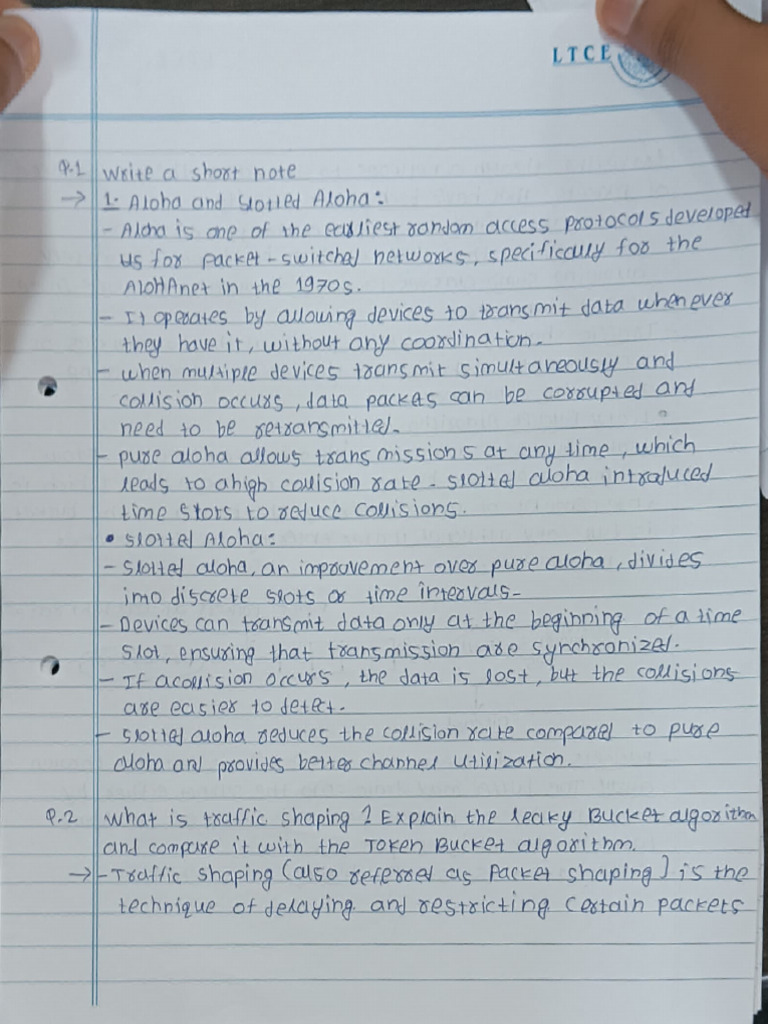 LTCE
Q.1 Write a short note
→ 1. Aloha and Slotted Aloha:
- Aloha is one of the earliest random access protocols developed
us for packet-switched networks, specifically for the
AlOHAnet in the 1970s.
- It operates by allowing devices to transmit data whenever
they have it, without any coordination.
- when multiple devices transmit simultaneously and
collision occurs, data packets can be corrupted and
need to be retransmitted.
- pure aloha allows transmissions at any time, which
leads to a high collision rate. slotted aloha introduced
time slots to reduce collisions.
• Slotted Aloha:
- Slotted aloha, an improvement over pure aloha, divides
into discrete slots or time intervals-
- Devices can transmit data only at the beginning of a time
slot, ensuring that transmission are synchronized.
- If a collision occurs, the data is lost, but the collisions
are easier to detect.
- slotted aloha reduces the collision rate compared to pure
aloha and provides better channel utilization.
Q.2 What is traffic shaping? Explain the leaky Bucket algorithm
and compare it with the Token Bucket algorithm.
→ - Traffic shaping (also referred as Packet shaping) is the
technique of delaying and restricting certain packets